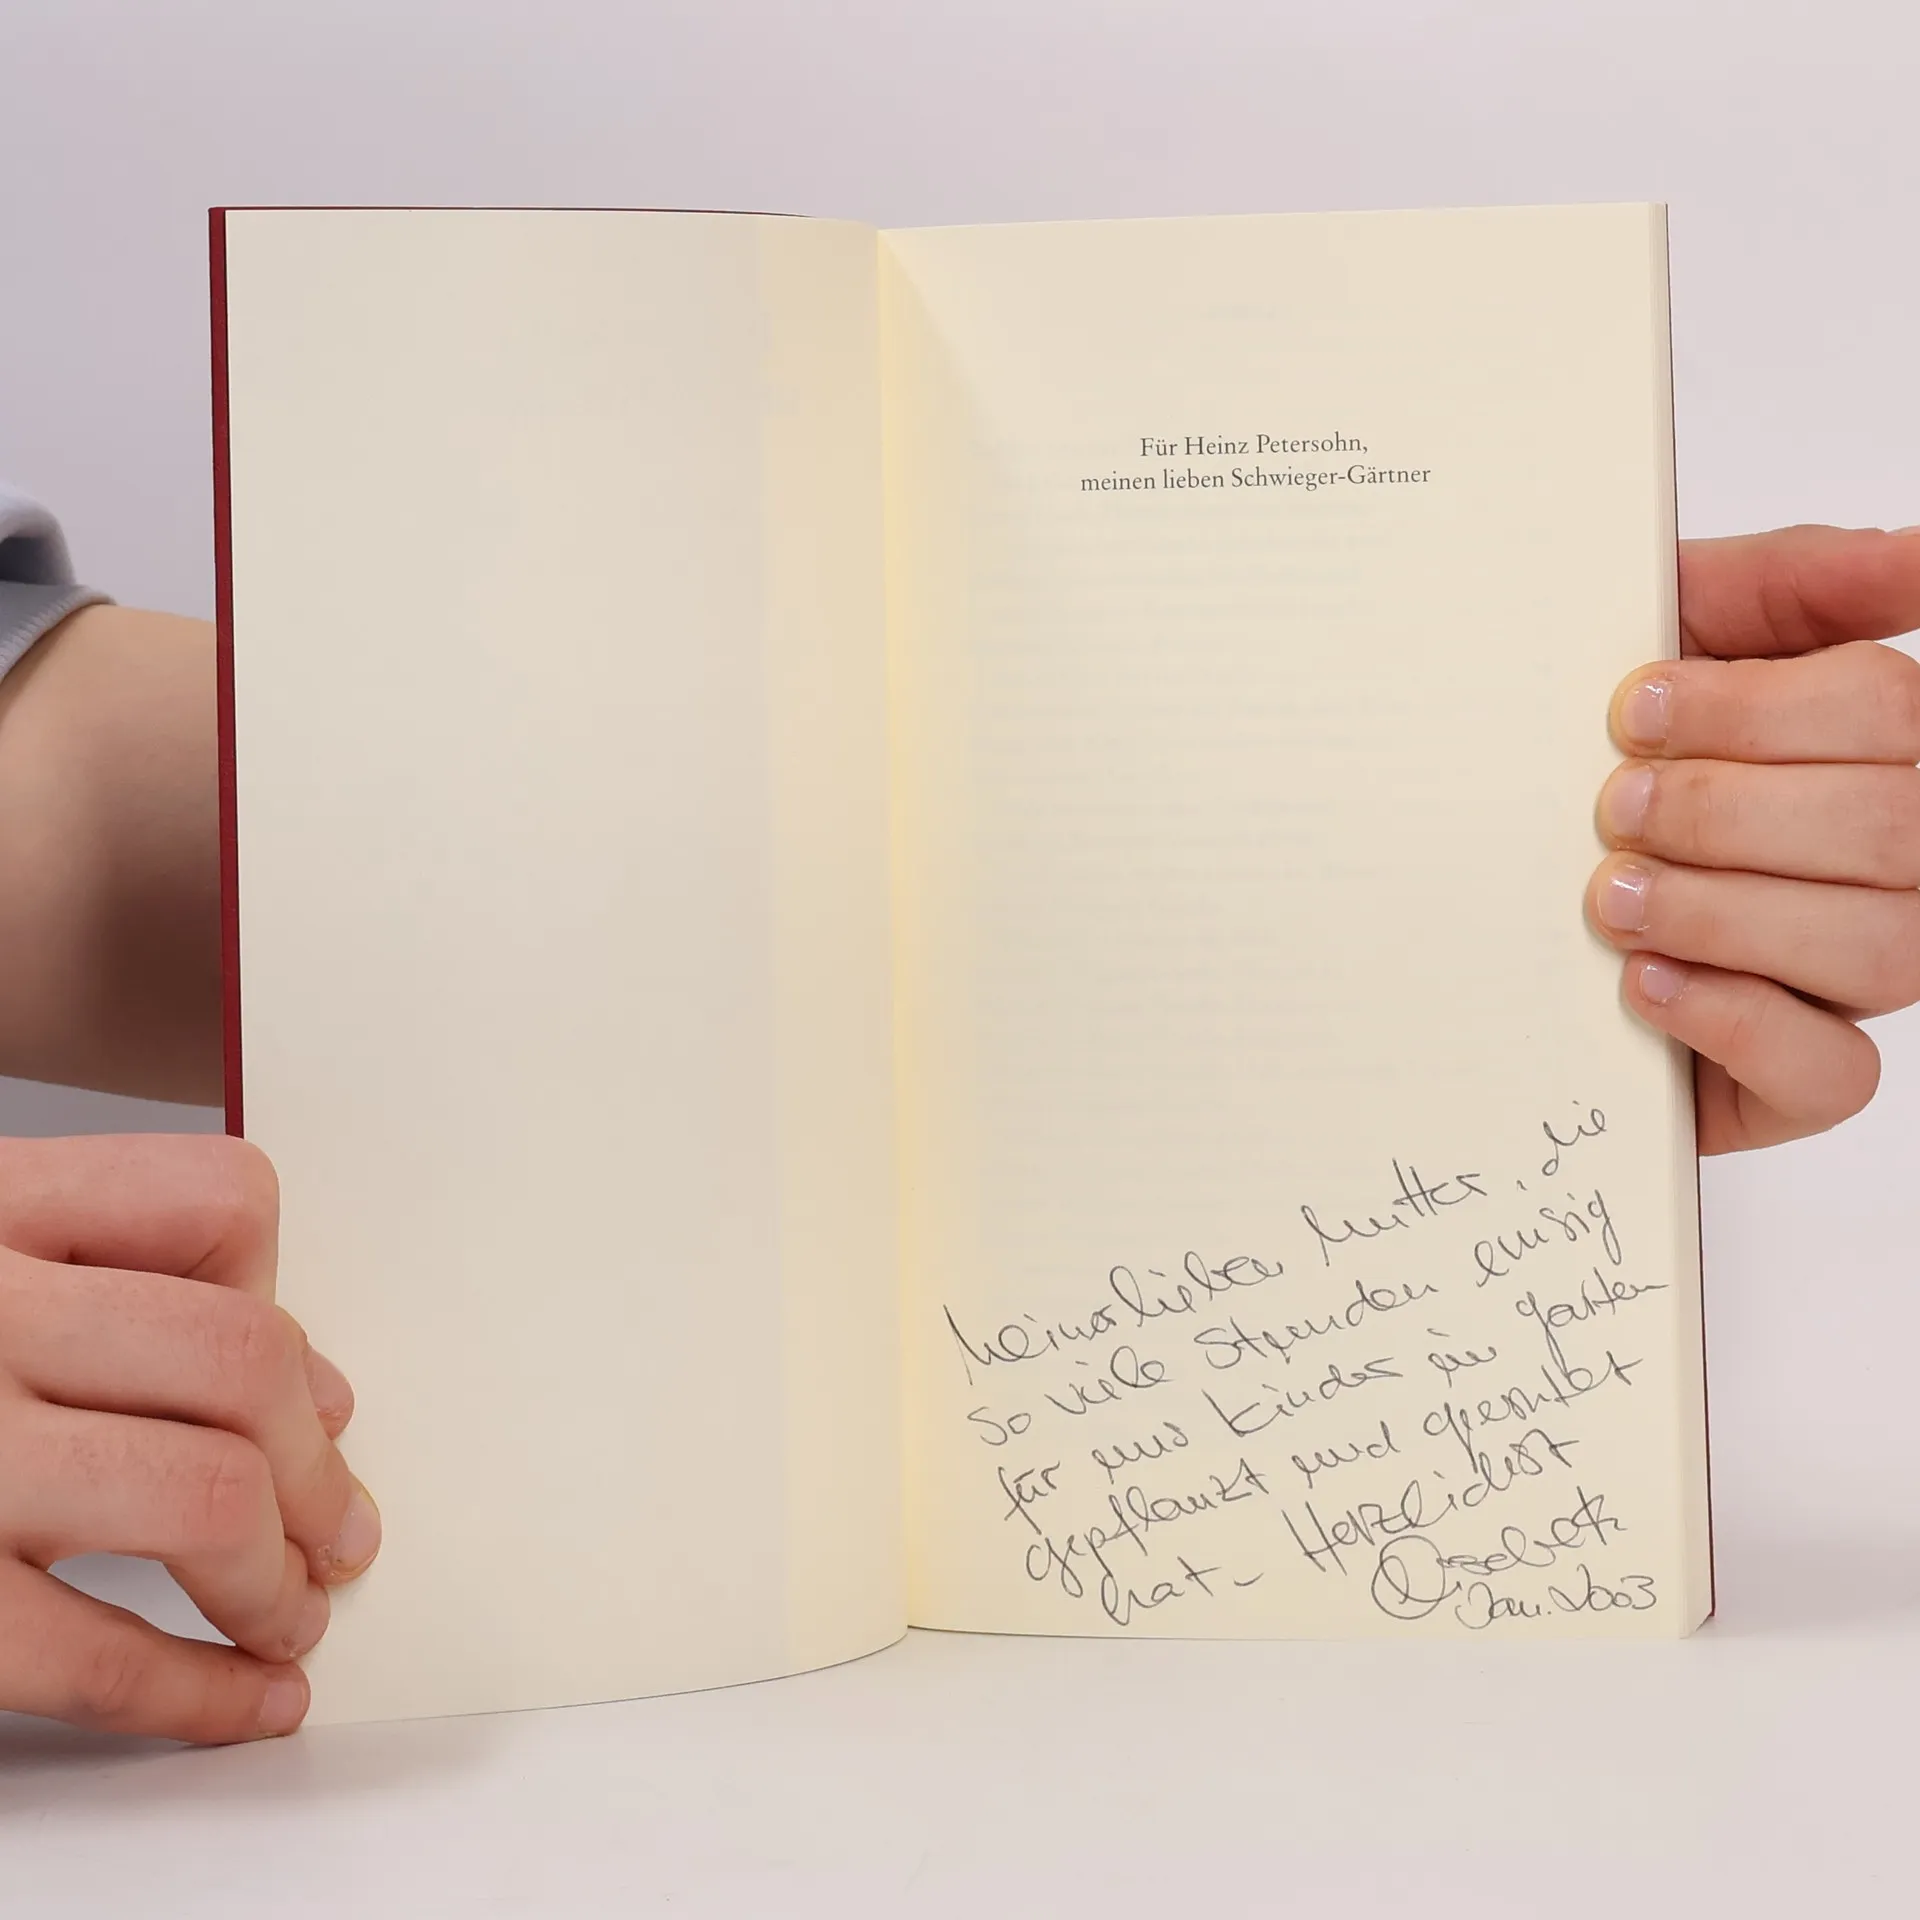 Für Heinz Petersohn,
meinen lieben Schwieger-Gärtner
Meiner lieben Mutter, die
so viele Stunden emsig
für uns Kinder im Garten
gepflanzt und geerntet
hat – Herzlichst
Elisabeth
Jan. 2003